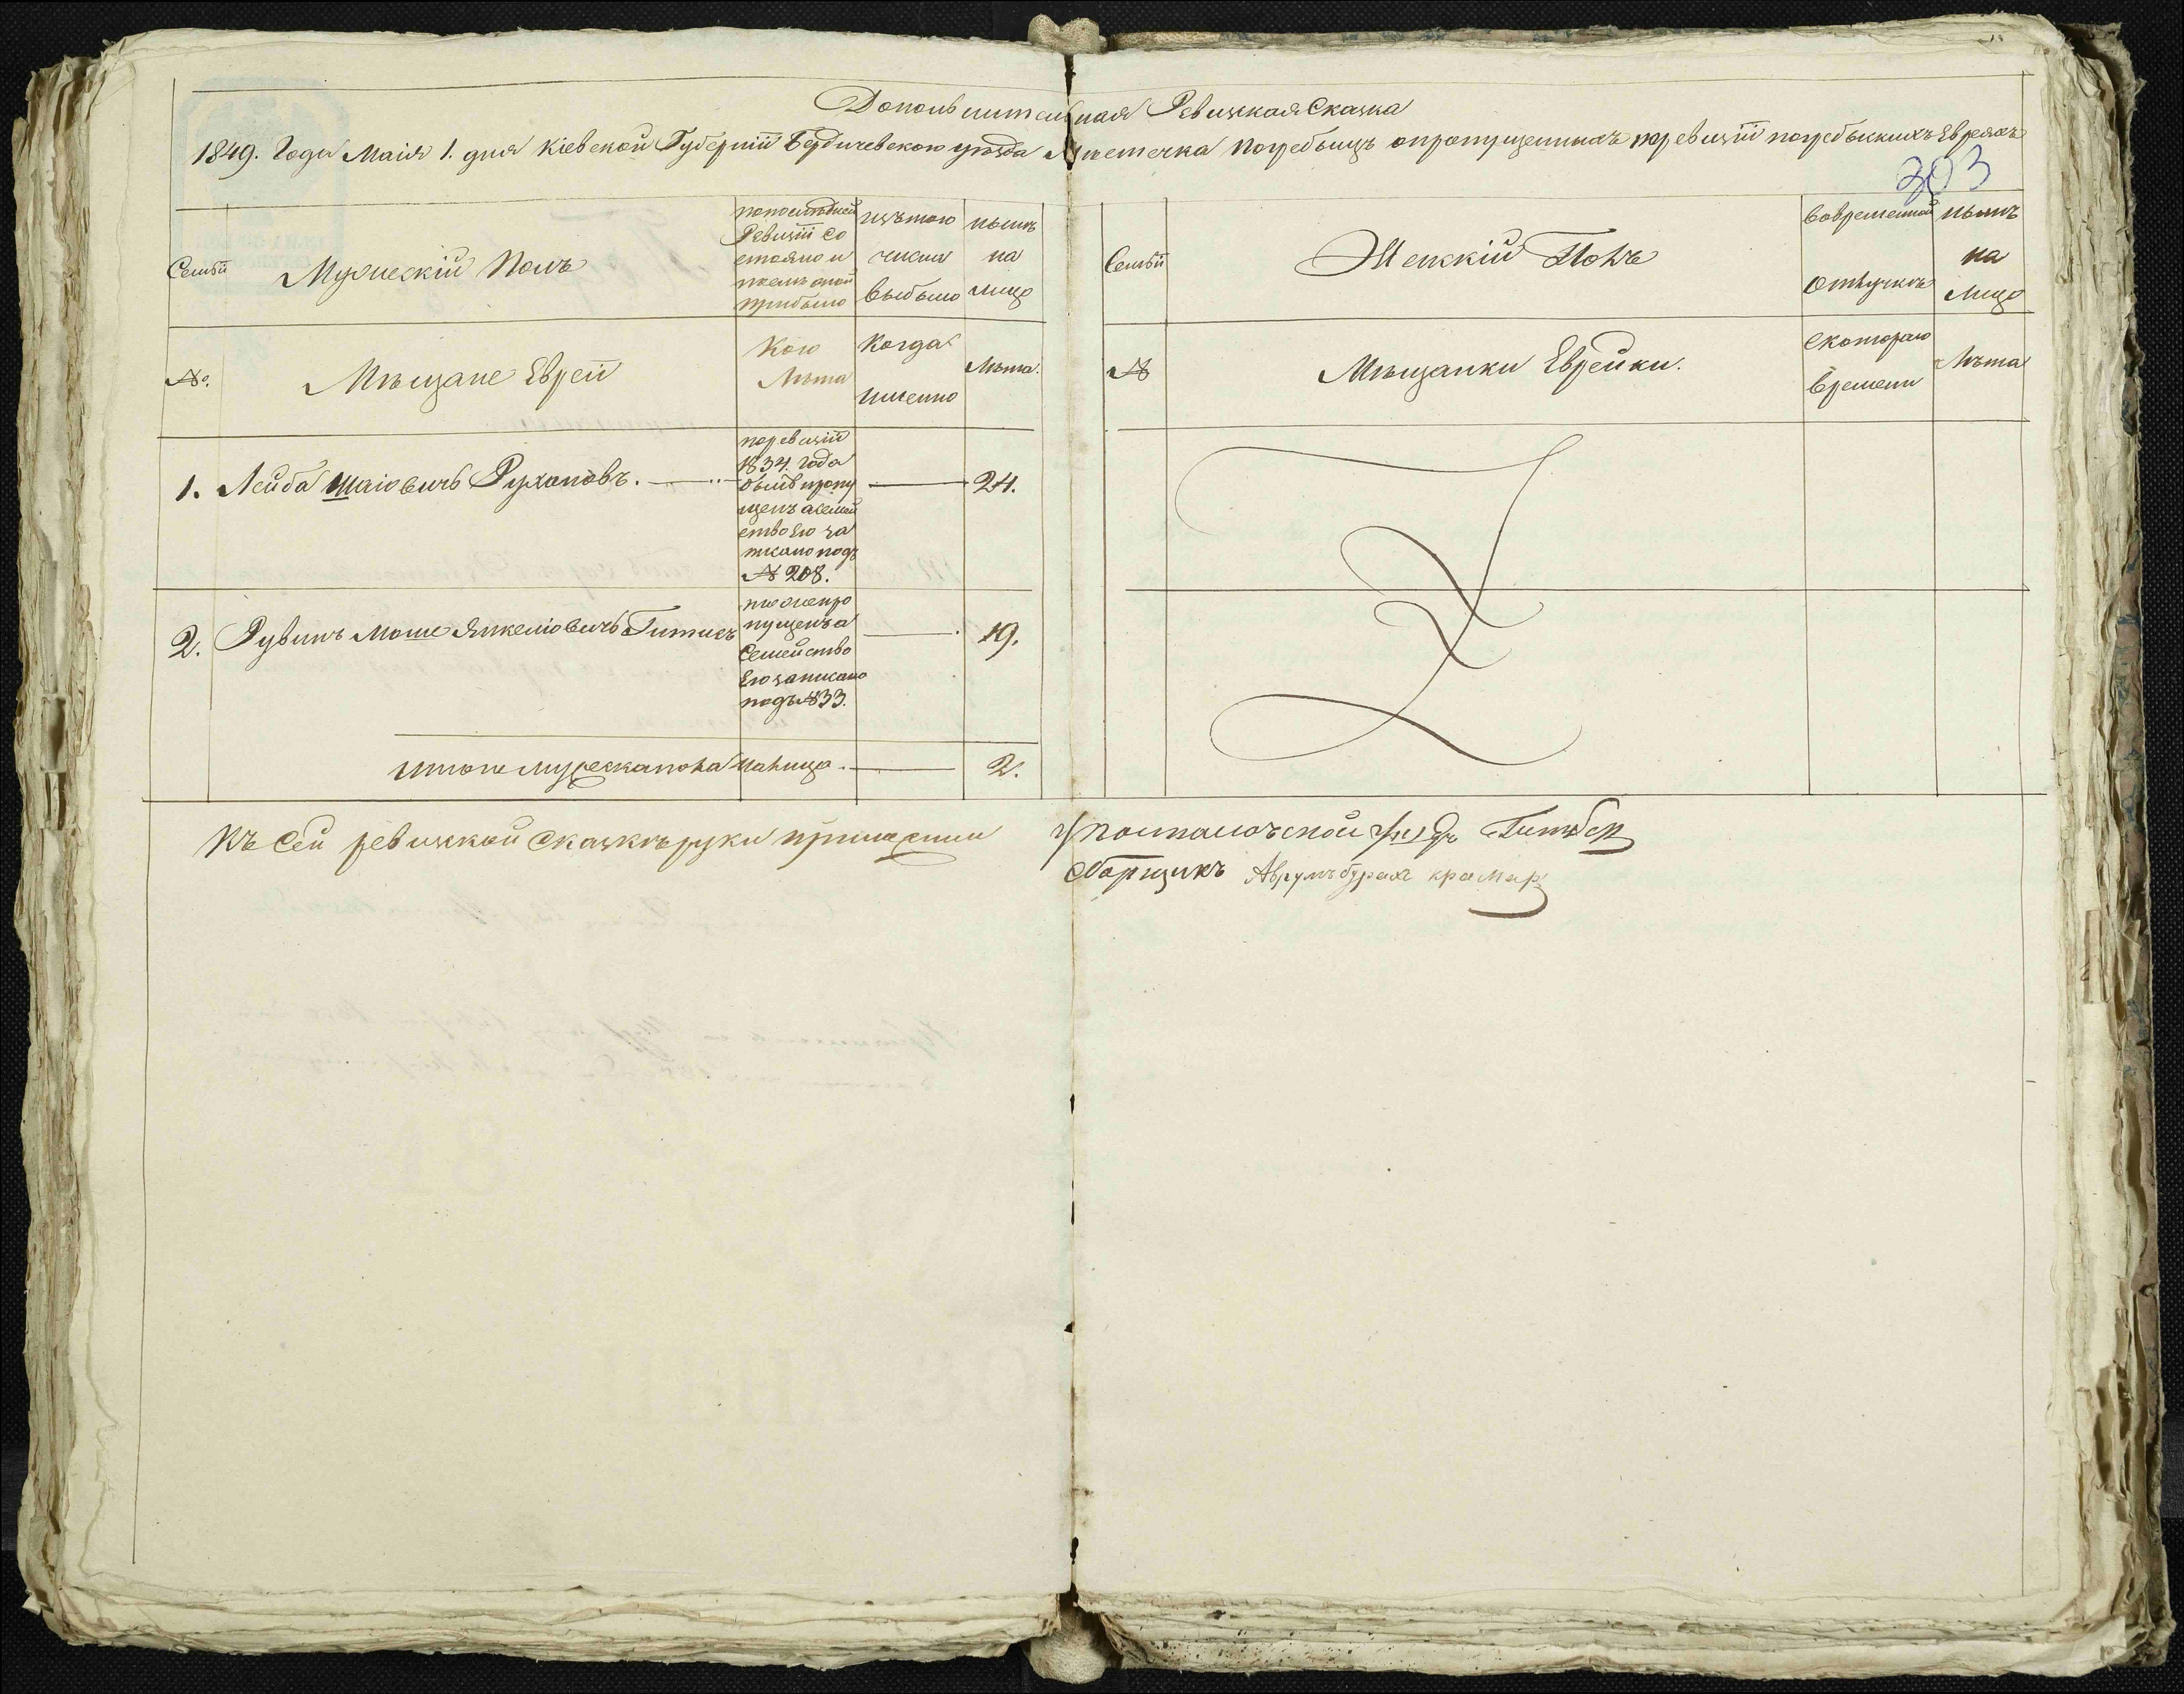 Дополнительная Ревизская Сказка
1849. Года Маія 1. дня Кіевской Губерніи Бердичевского уѣзда Мѣстечка Погребищъ опропущенныхъ поревизіи погребыскихъ Евреяхъ
303
Семьи
Мужескій Полъ
попоследней
Ревизіи со
стояло и
послѣ оной
прибыло
изътого
числа
выбыло
нынѣ
на
лицо
Семьи
Женскій Полъ
Вовременной
Отлучкѣ
нынѣ
на
Лицо
№.
Мѣщане Евреи
Кого
Лѣта
Когда
именно
Лѣта.
№
Мѣщанки Еврейки.
Скотораго
времени
Лѣта
1. Лейба Шаіовичъ Рухоповъ.
поревизіи
1834. года
бывъ пропу
щенъ асемей
ство Его за
писано подъ
№ 208.
24.
2. Рувинъ Моше Янкеліовичъ Гитисъ
тоже про
пущенъ а
Семейство
Его записано
подъ №33.
19.
Итого мужескапола налицо.
2.
Къ Сей ревизкой Сказкѣ руки приложили
Сборщикъ Аврумъ бурах крамар